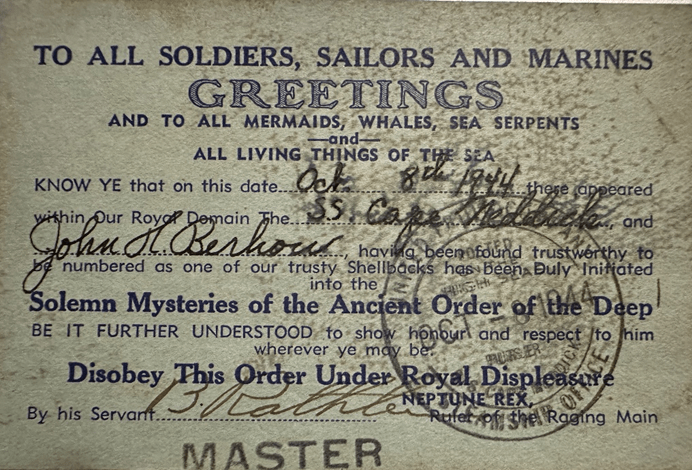 TO ALL SOLDIERS, SAILORS AND MARINES
GREETINGS
AND TO ALL MERMAIDS, WHALES, SEA SERPENTS
—and—
ALL LIVING THINGS OF THE SEA
KNOW YE that on this date Oct. 8th 1944 there appeared
within Our Royal Domain The SS. Cape Neddick, and
John H Berhow, having been found trustworthy to
be numbered as one of our trusty Shellbacks has been Duly Initiated
into the
Solemn Mysteries of the Ancient Order of the Deep
BE IT FURTHER UNDERSTOOD to show honour and respect to him
wherever ye may be.
Disobey This Order Under Royal Displeasure
NEPTUNE REX,
By his Servant B. Ruler of the Raging Main
MASTER
OCT 1944